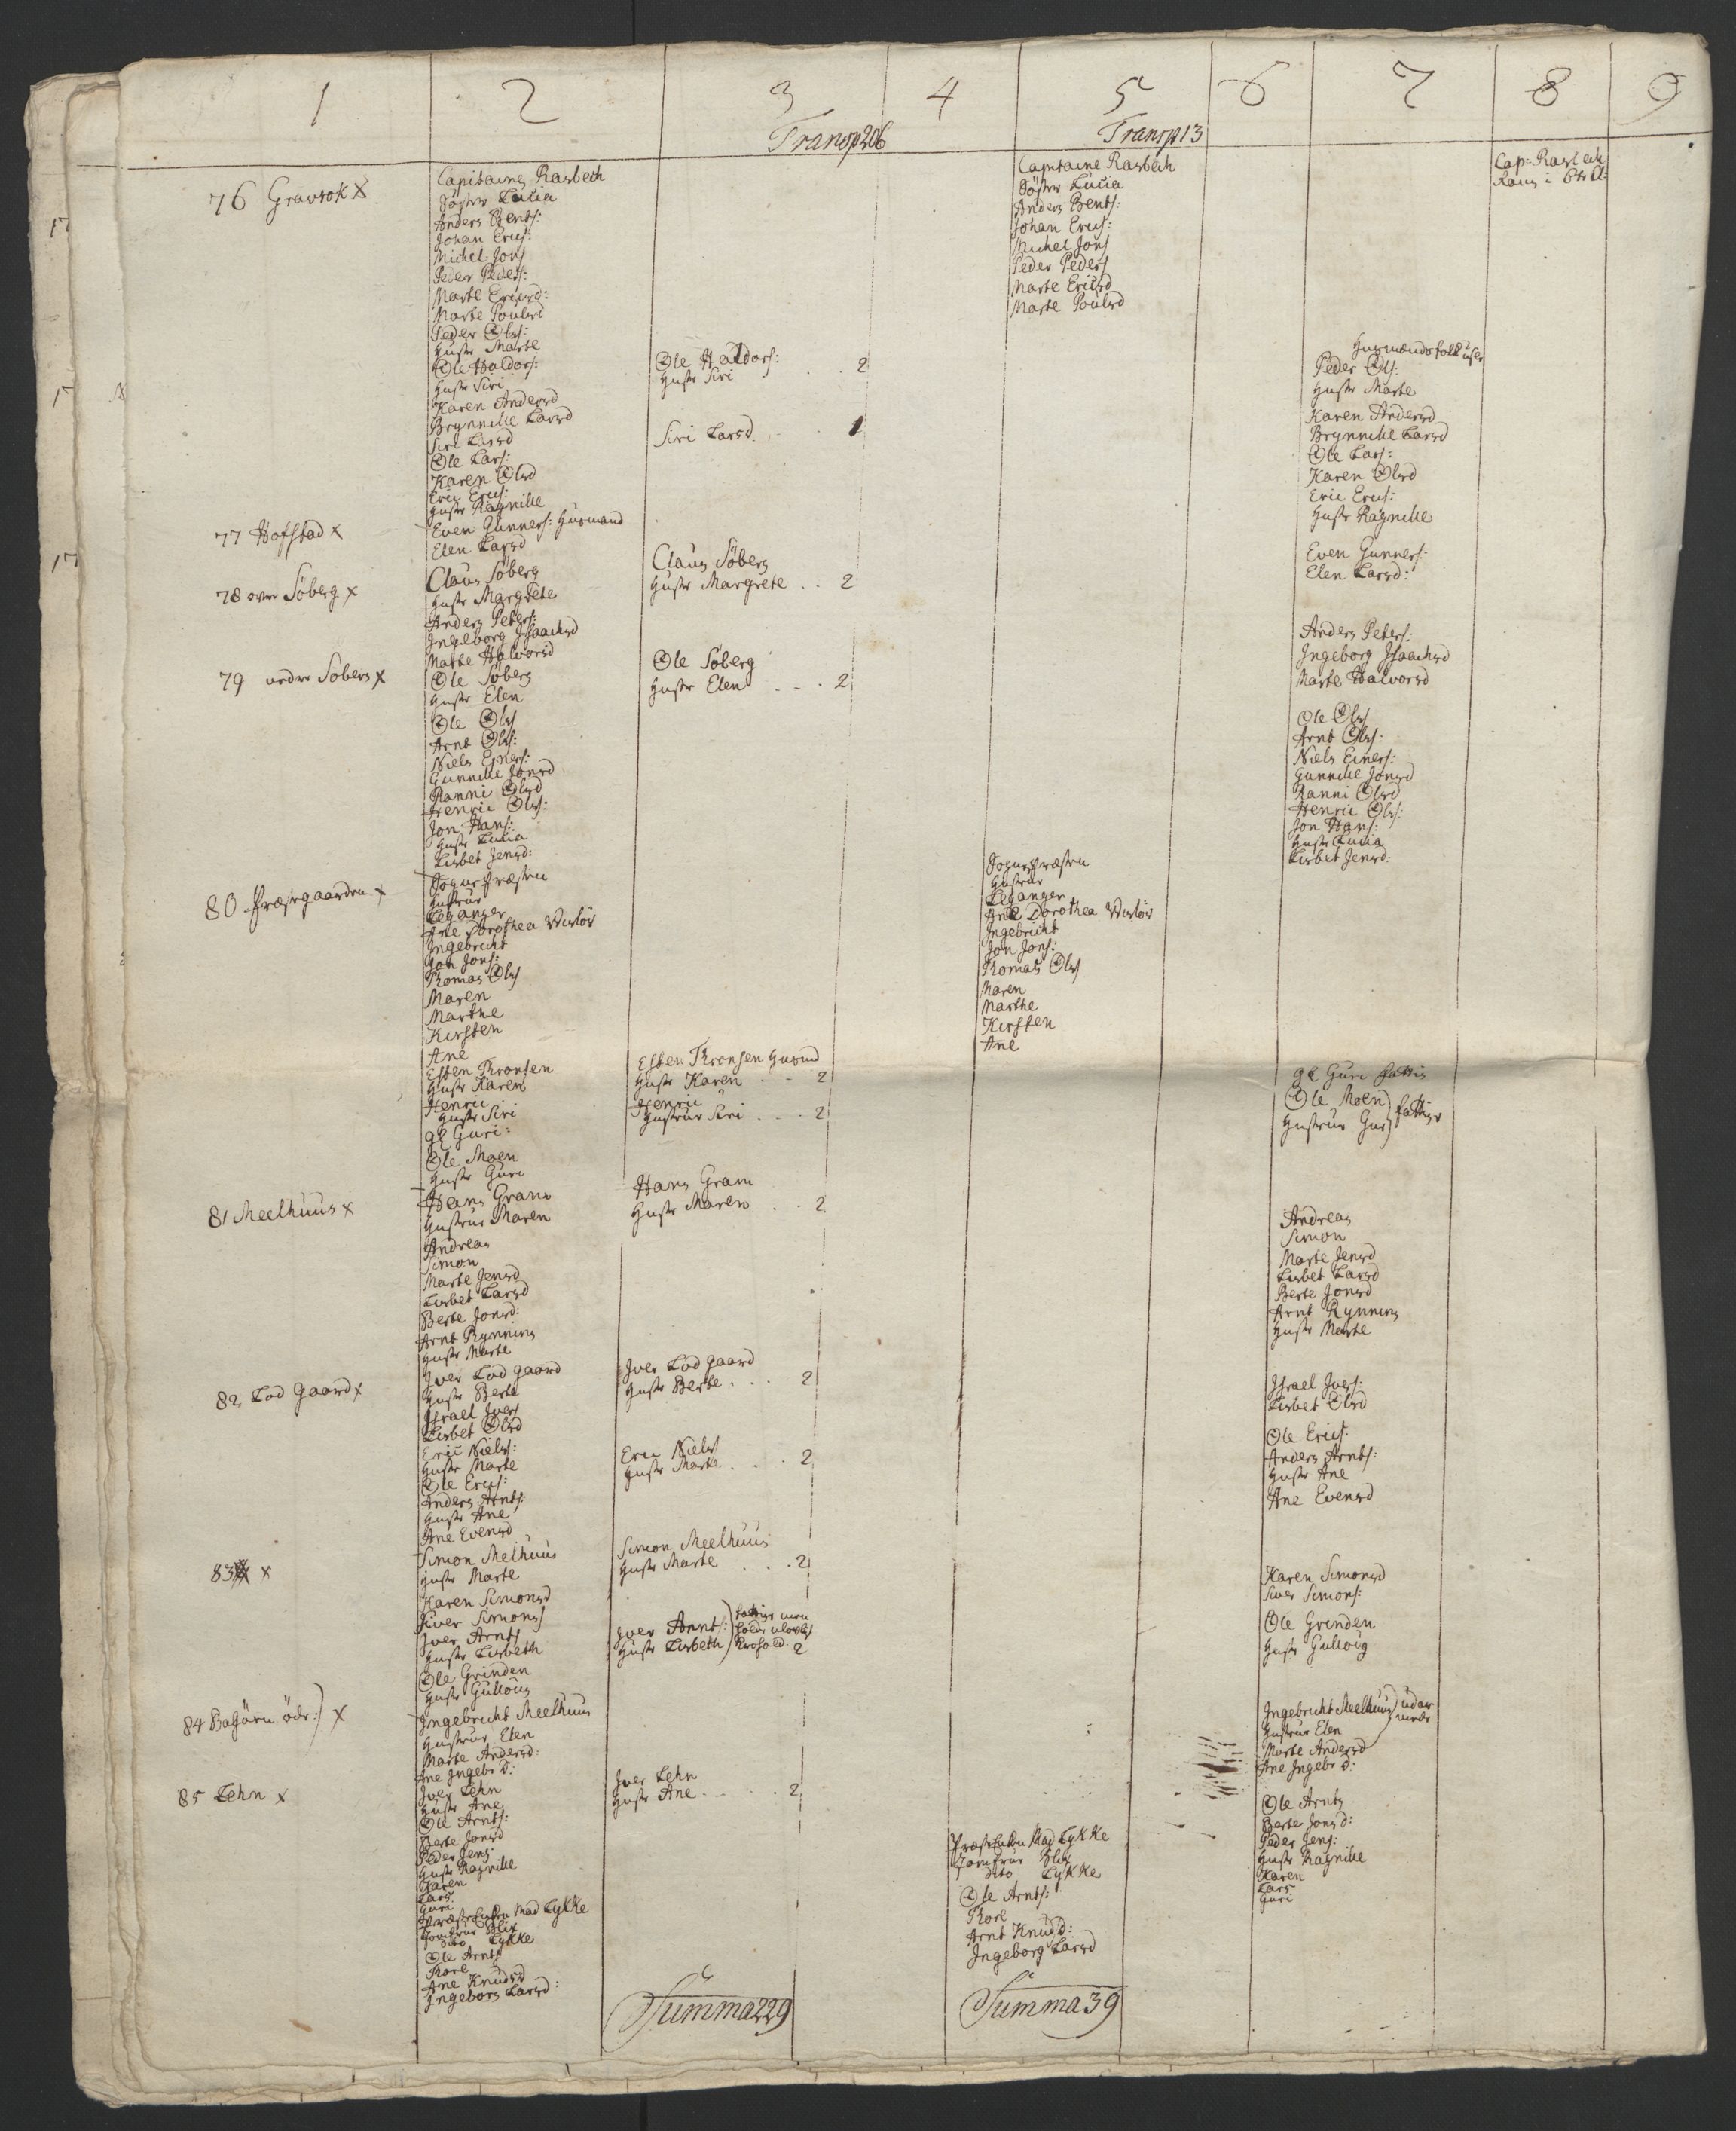 1 2 3 4 5 6 7 8 9
Transp 206
Transp 13
76 Gravrok x
77 Hofstad x
78 over Söberg x
79 nedre Söberg x
80 Præstgaarden x
81 Meelhuus x
82 Lod gaard x
83 x
84 öde x
85 Lehn x
Capitaine Rasbech
Söster Lucia
Anders Bents:
Johan Erics:
Michel Jons
Peder Peders:
Marte Ericsd:
Marte Poulsd
Peder Ols:
Hustr Marte
Ole Haldors:
Hustr Siri
Karen Andersd
Brynnille Larsd
Siri Larsd
Ole Lars:
Karen Olsd
Eric Erics:
Hustr Ragnille
Even Gunners: Husmand
Elen Larsd
Claus Söberg
Hustr Margrete
Anders Peters:
Ingeborg Isaachsd
Marte Halvorsd
Ole Söberg
Hustr Elen
Ole Ols
Arnt Ols:
Niels Einers:
Gunnille Jonsd
Ranni Olsd
Henric Ols:
Jon Hans:
Hustr Lucia
Lisbet Jensd:
Sognepræsten
Hustrue
Leganger
Ane Dorothea
Ingebricht
Jon Jons:
Thomas Ols
Maren
Marthe
Kirsten
Ane
Esten Thronsen
Hustr Karen
Henric
Hustr Siri
gl Guri:
Ole Moen
Hustr Guri
Hans Gram
Hustrue Maren
Andreas
Simon
Marte Jensd
Lisbet Larsd
Berte Jonsd:
Arnt Rynning
Hustr Marte
Iver Lod gaard
Hustr Berte
Israel Ivers
Lisbet Olsd
Eric Niels:
Hustr Marte
Ole Erics:
Anders Arnts:
Hustr Ane
Ane Evensd
Simon Melhuus
Hustr Marte
Karen Simonsd
Siver Simons
Iver Arnts
Hustr Lisbeth
Ole Grinden
Hustr Gulloug
Ingebricht Meelhuus
Hustrue Elen
Marte Andersd:
Ane Ingebr D:
Iver Lehn
Hustr Ane
Ole Arnts:
Berte Jonsd
Peder Jens:
Hustr Ragnille
Karen
Lars
Guri
Præste Enken Mad Lykke
Jomfrue Blix
dito Lykke
Ole Arnts
Thore
Ane Knudsd
Ingeborg Larsd:
Ole Haldors:
Hustr Siri . . 2
Siri Larsd . . 1
Claus Söberg
Hustr Margrete . . 2
Ole Söberg
Hustr Elen . . . 2
Esten Thronsen Husmd
Hustr Karen . . 2
Henric
Hustrue Siri . . . 2
Hans Gram
Hustr Maren . . 2
Iver Lod gaard
Hustr Berte . . . 2
Eric Niels
Hustr Marte . . . 2
Simon Meelhuus
Hustr Marte . . . 2
Iver Arnnts:
Hustr Lisbeth
2
Iver Lehn
Hustr Ane . . . . 2
Summa 229
Capitaine Rasbech
Söster Lucia
Anders Bents:
Johan Erics:
Michel Jons
Peder Peders
Marte Ericsd
Marte Poulsd
Sognepræsten
Hustrue
Leganger
Ane Dorothea
Ingebricht
Jon Jons:
Thomas Ols
Maren
Marthe
Kirsten
Ane
Præste Enken Mad Lykke
Jomfrue Blix
dito Lykke
Ole Arnts:
Thore
Arnt Knuds D:
Ingeborg Larsd
Summa 39
Peder Ols:
Hustr Marte
Karen Andersd
Brynnille Larsd
Ole Lars:
Karen Olsd
Eric Erics:
Hustr Ragnille
Even Gunners:
Elen Larsd:
Anders Peters:
Ingeborg Isaachsd
Marte Halvorsd
Ole Ols
Arnt Ols:
Niels Einers:
Gunnille Jonsd
Ranni Olsd
Henric Ols:
Jon Hans:
Hustr Lucia
Lisbet Jensd:
gl Guri fattig
Ole Moen
Hustrue Guri
fattige
Andreas
Simon
Marte Jensd
Lisbet Larsd
Berte Jonsd
Arnt Rynning
Hustr Marte
Israel Ivers:
Lisbet Olsd
Ole Erics:
Anders Arnts:
Hustr Ane
Ane Evensd
Karen Simonsd
Siver Simons:
Ole Grinden
Hustr Gulloug
Ingebricht Meelhuus
Hustrue Elen
Marte Andersd
Ane Ingebr D:
Ole Arnts
Berte Jons D:
Peder Jens:
Hustr Ragnille
Karen
Lars
Guri
Cap: Rasbech